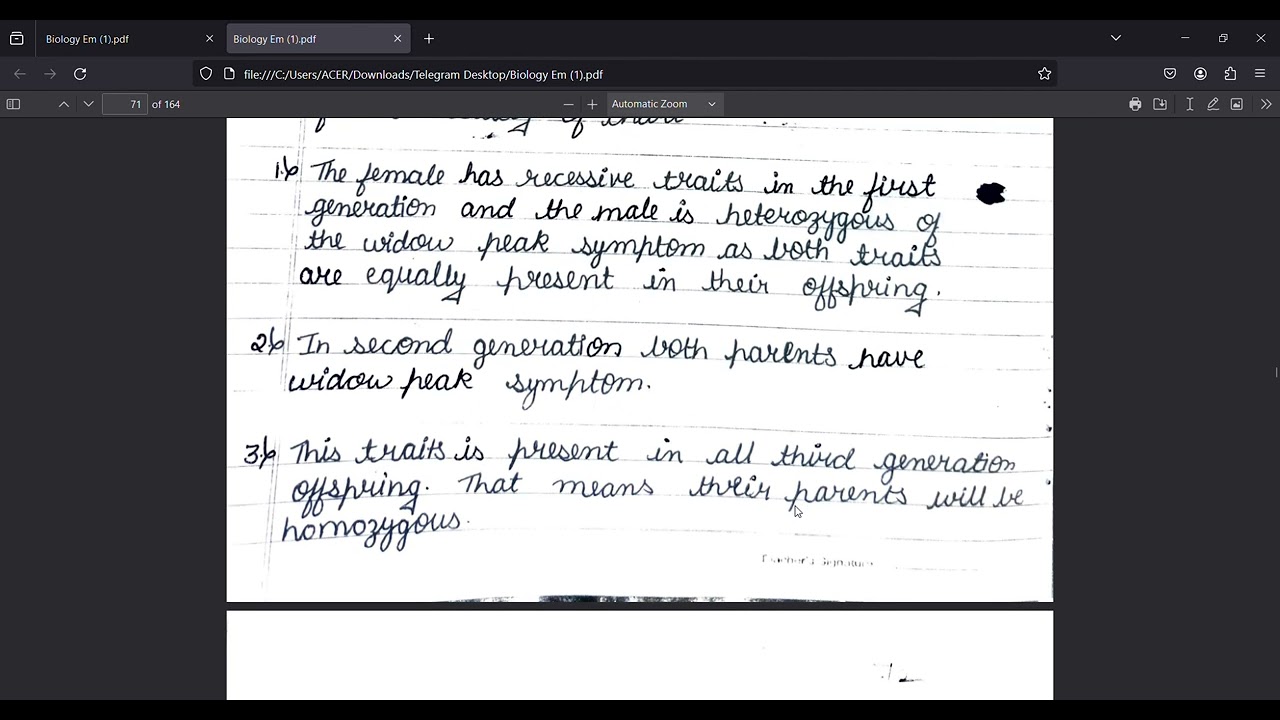 Biology Em (1).pdf
Biology Em (1).pdf
file:///C:/Users/ACER/Downloads/Telegram Desktop/Biology Em (1).pdf
71 of 164
Automatic Zoom
of
1.) The female has recessive traits in the first
generation and the male is heterozygous of
the widow peak symptom as both traits
are equally present in their offspring.
2.) In second generation both parents have
widow peak symptom.
3.) This traits is present in all third generation
offspring. That means their parents will be
homozygous.
Teacher's Signature
72